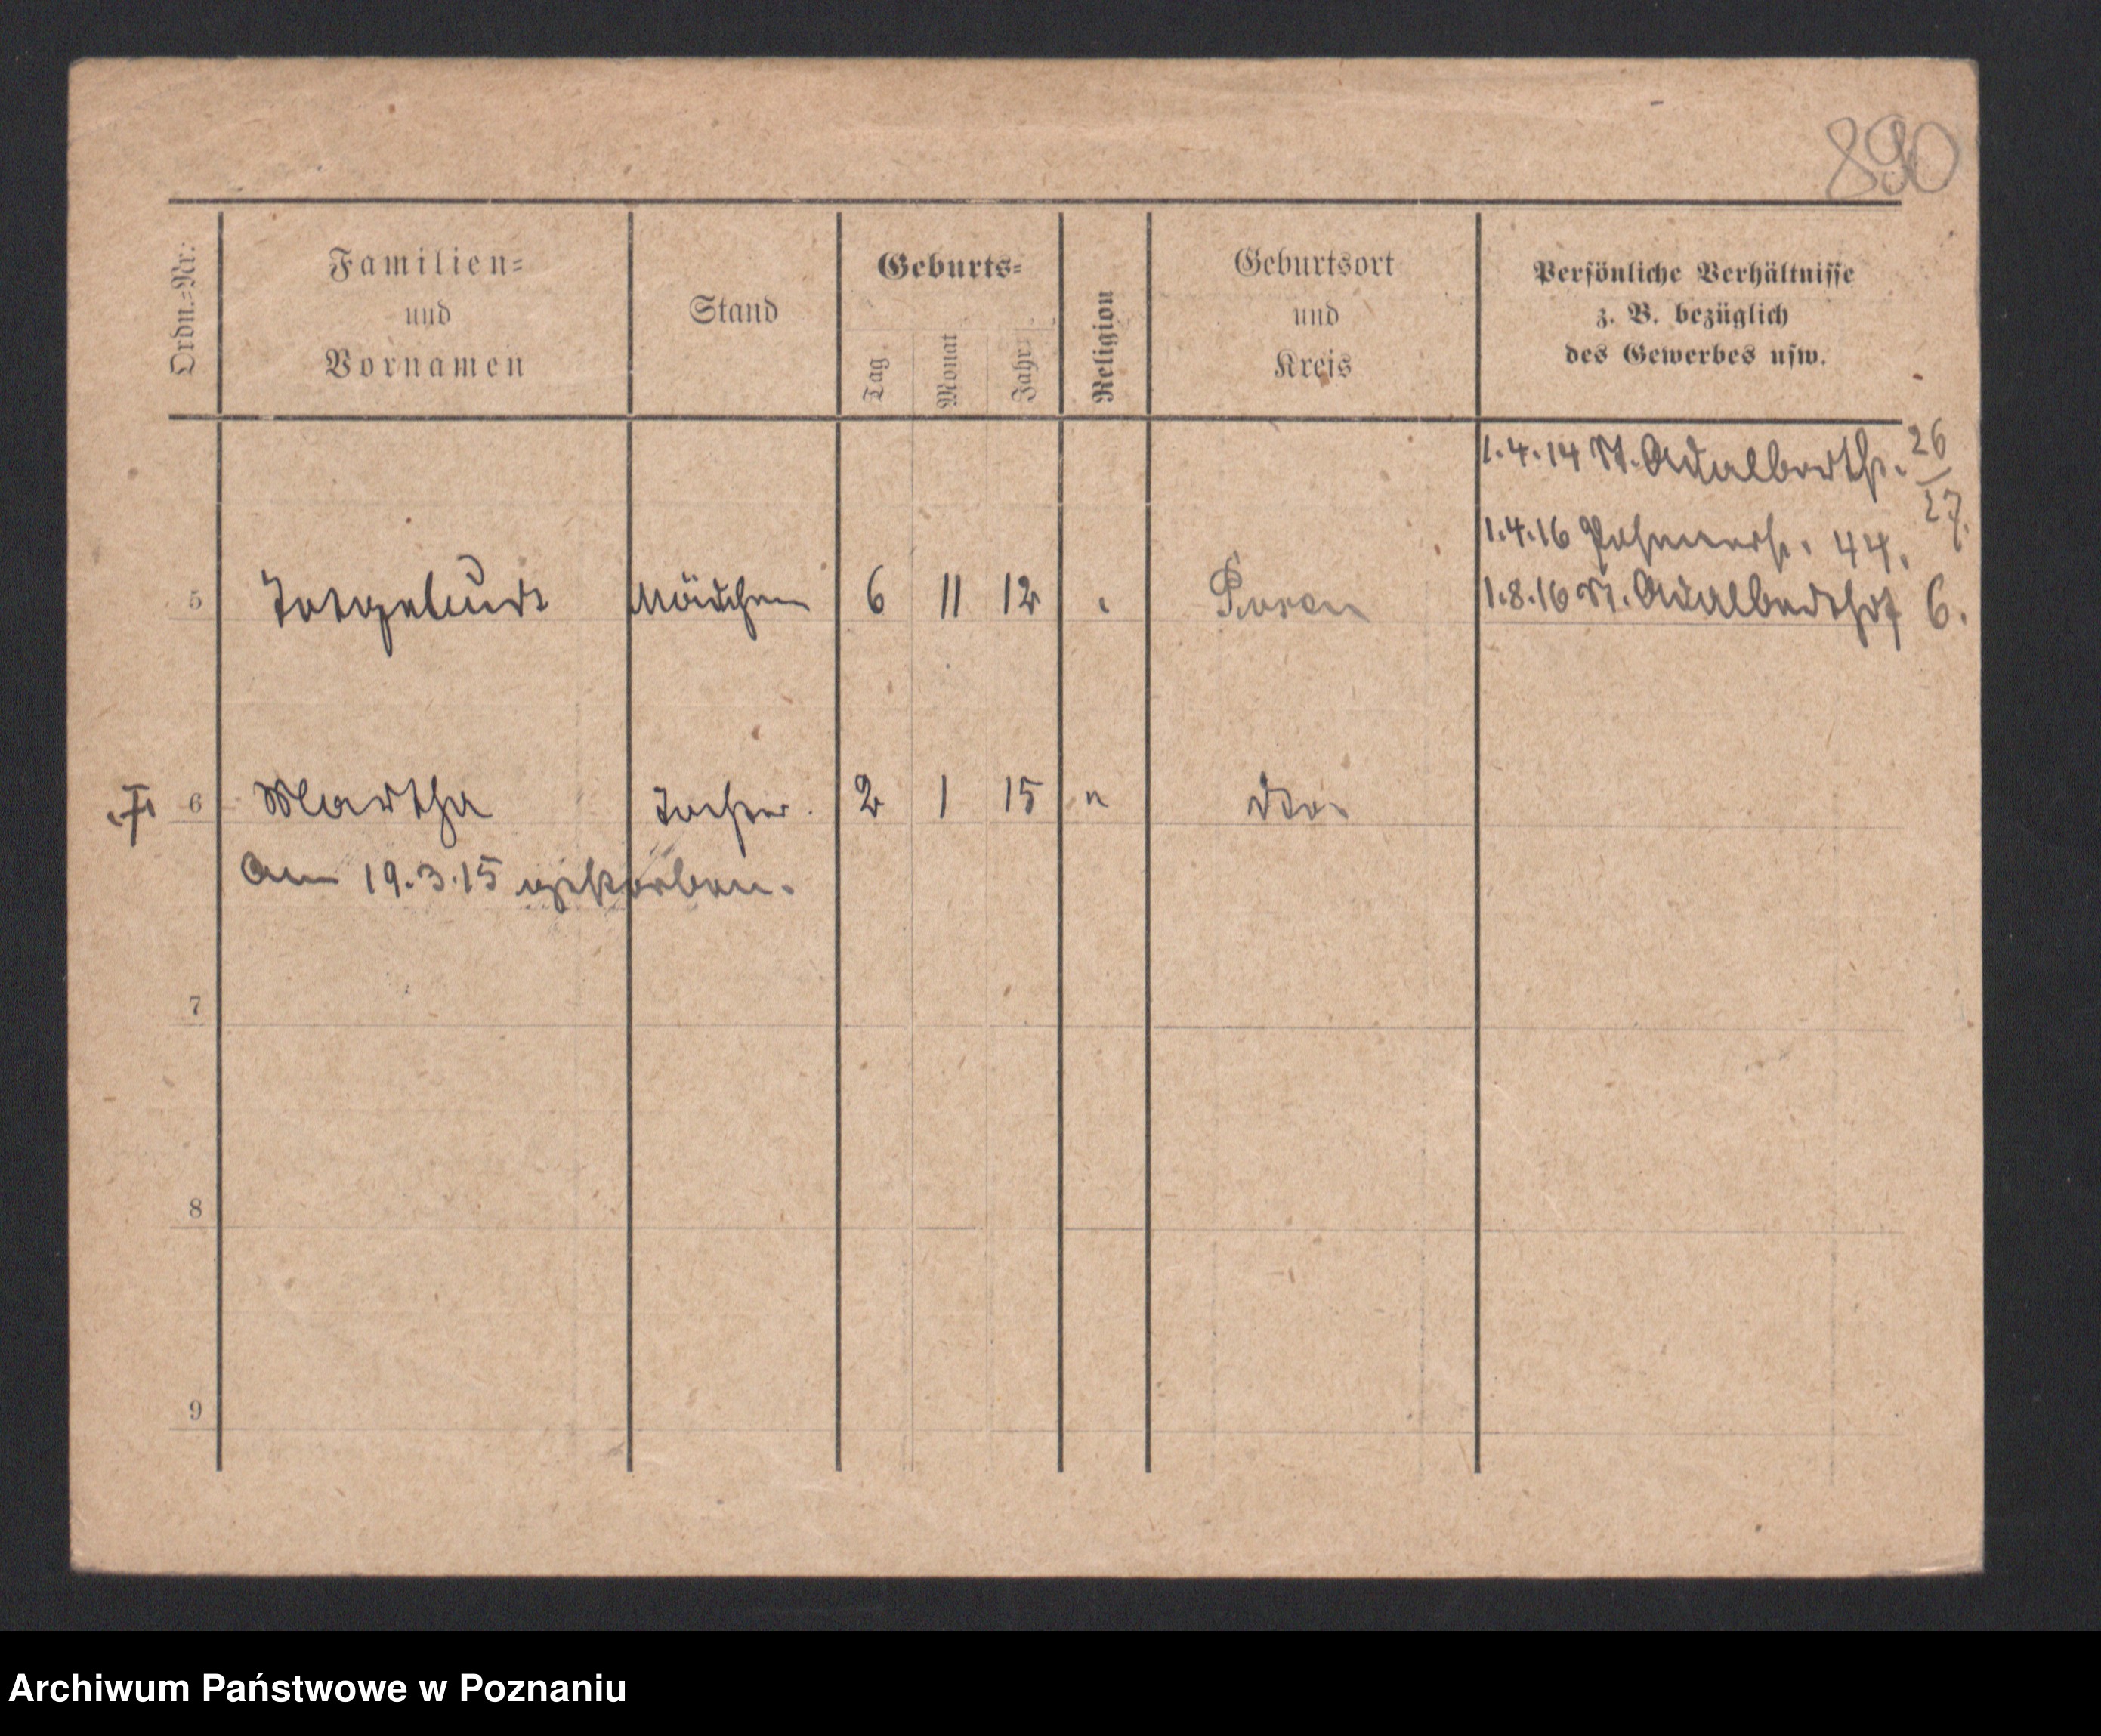 890
Ordn.-Nr.:
Familien-
und
Vornamen
Stand
Geburts-
Tag
Monat
Jahr
Religion
Geburtsort
und
Kreis
Persönliche Verhältnisse
z. B. bezüglich
des Gewerbes usw.
1.4.14 St. Adalbertstr. 26/27.
1.4.16 44.
5 Totgeburt Mädchen 6 11 12 Posen 1.8.16 St. Adalbertstr 6.
6 Martha Tochter 2 1 15 " dto.
Am 19.3.15 gestorben.
7
8
9
Archiwum Państwowe w Poznaniu